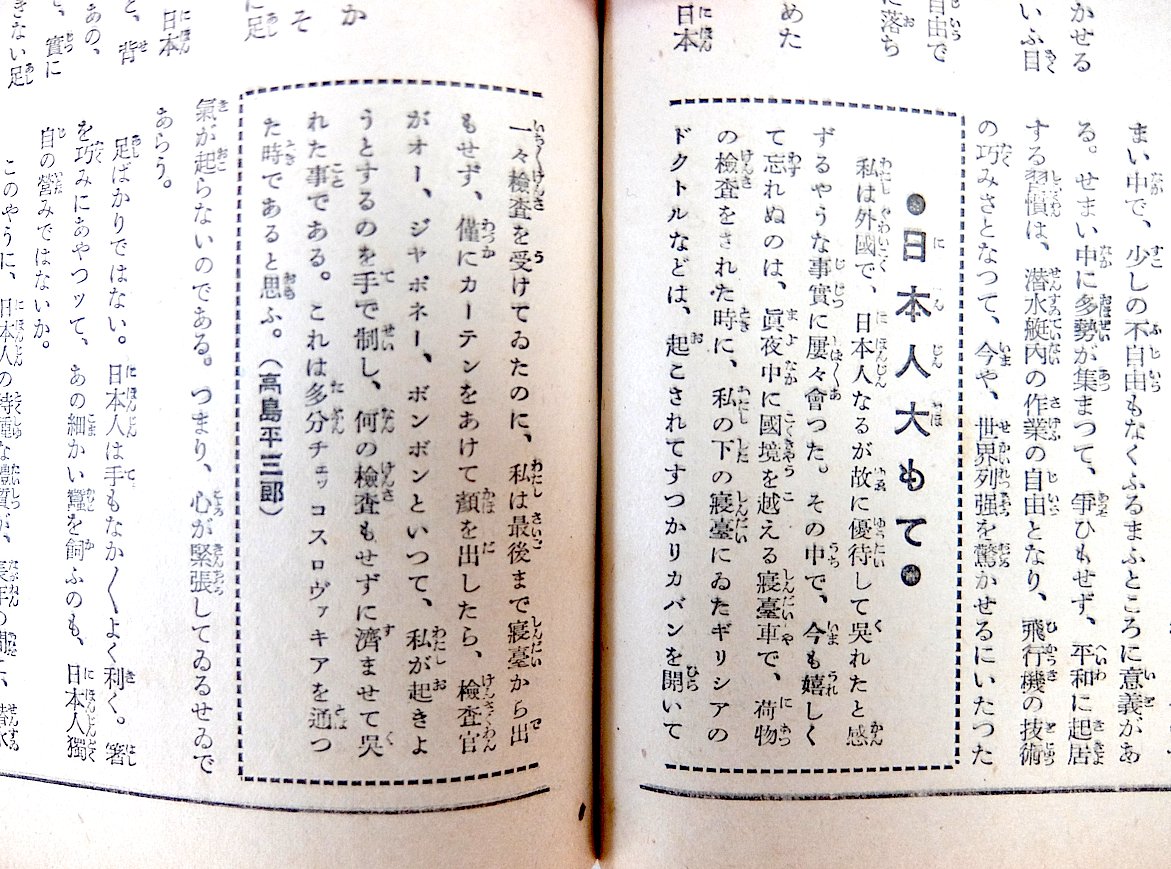 かせる
いふ目
自由で
に落ち
めた
日本
まい中で、少しの不自由もなくふるまふところに意義があ
る。せまい中に多勢が集まつて、爭ひもせず、平和に起居
する習慣は、潜水艇内の作業の自由となり、飛行機の技術
の巧みさとなつて、今や、世界列强を驚かせるにいたつた
●日本人大もて●
私は外國で、日本人なるが故に優待して吳れたと感
ずるやうな事實に屢々會つた。その中で、今も嬉しく
て忘れぬのは、眞夜中に國境を越える寢臺車で、荷物
の檢査をされた時に、私の下の寢臺にゐたギリシアの
ドクトルなどは、起こされてすつかりカバンを開いて
一々檢査を受けてゐたのに、私は最後まで寢臺から出
もせず、僅にカーテンをあけて顏を出したら、檢査官
がオー、ジヤポネー、ボンボンといつて、私が起きよ
うとするのを手で制し、何の檢査もせずに濟ませて吳
れた事である。これは多分チェッコスロヴァキアを通つ
た時であると思ふ。(高島平三郎)
か
そ
に足
日本
と、背
あの、
實に
きない足
氣が起らないのである。つまり、心が緊張してゐるせゐで
あらう。
足ばかりではない。日本人は手もなか〱よく利く。箸
を巧みにあやつッて、あの細かい蠶を飼ふのも、日本人獨
自の營みではないか。
このやうに、日本人の特種な體質が、